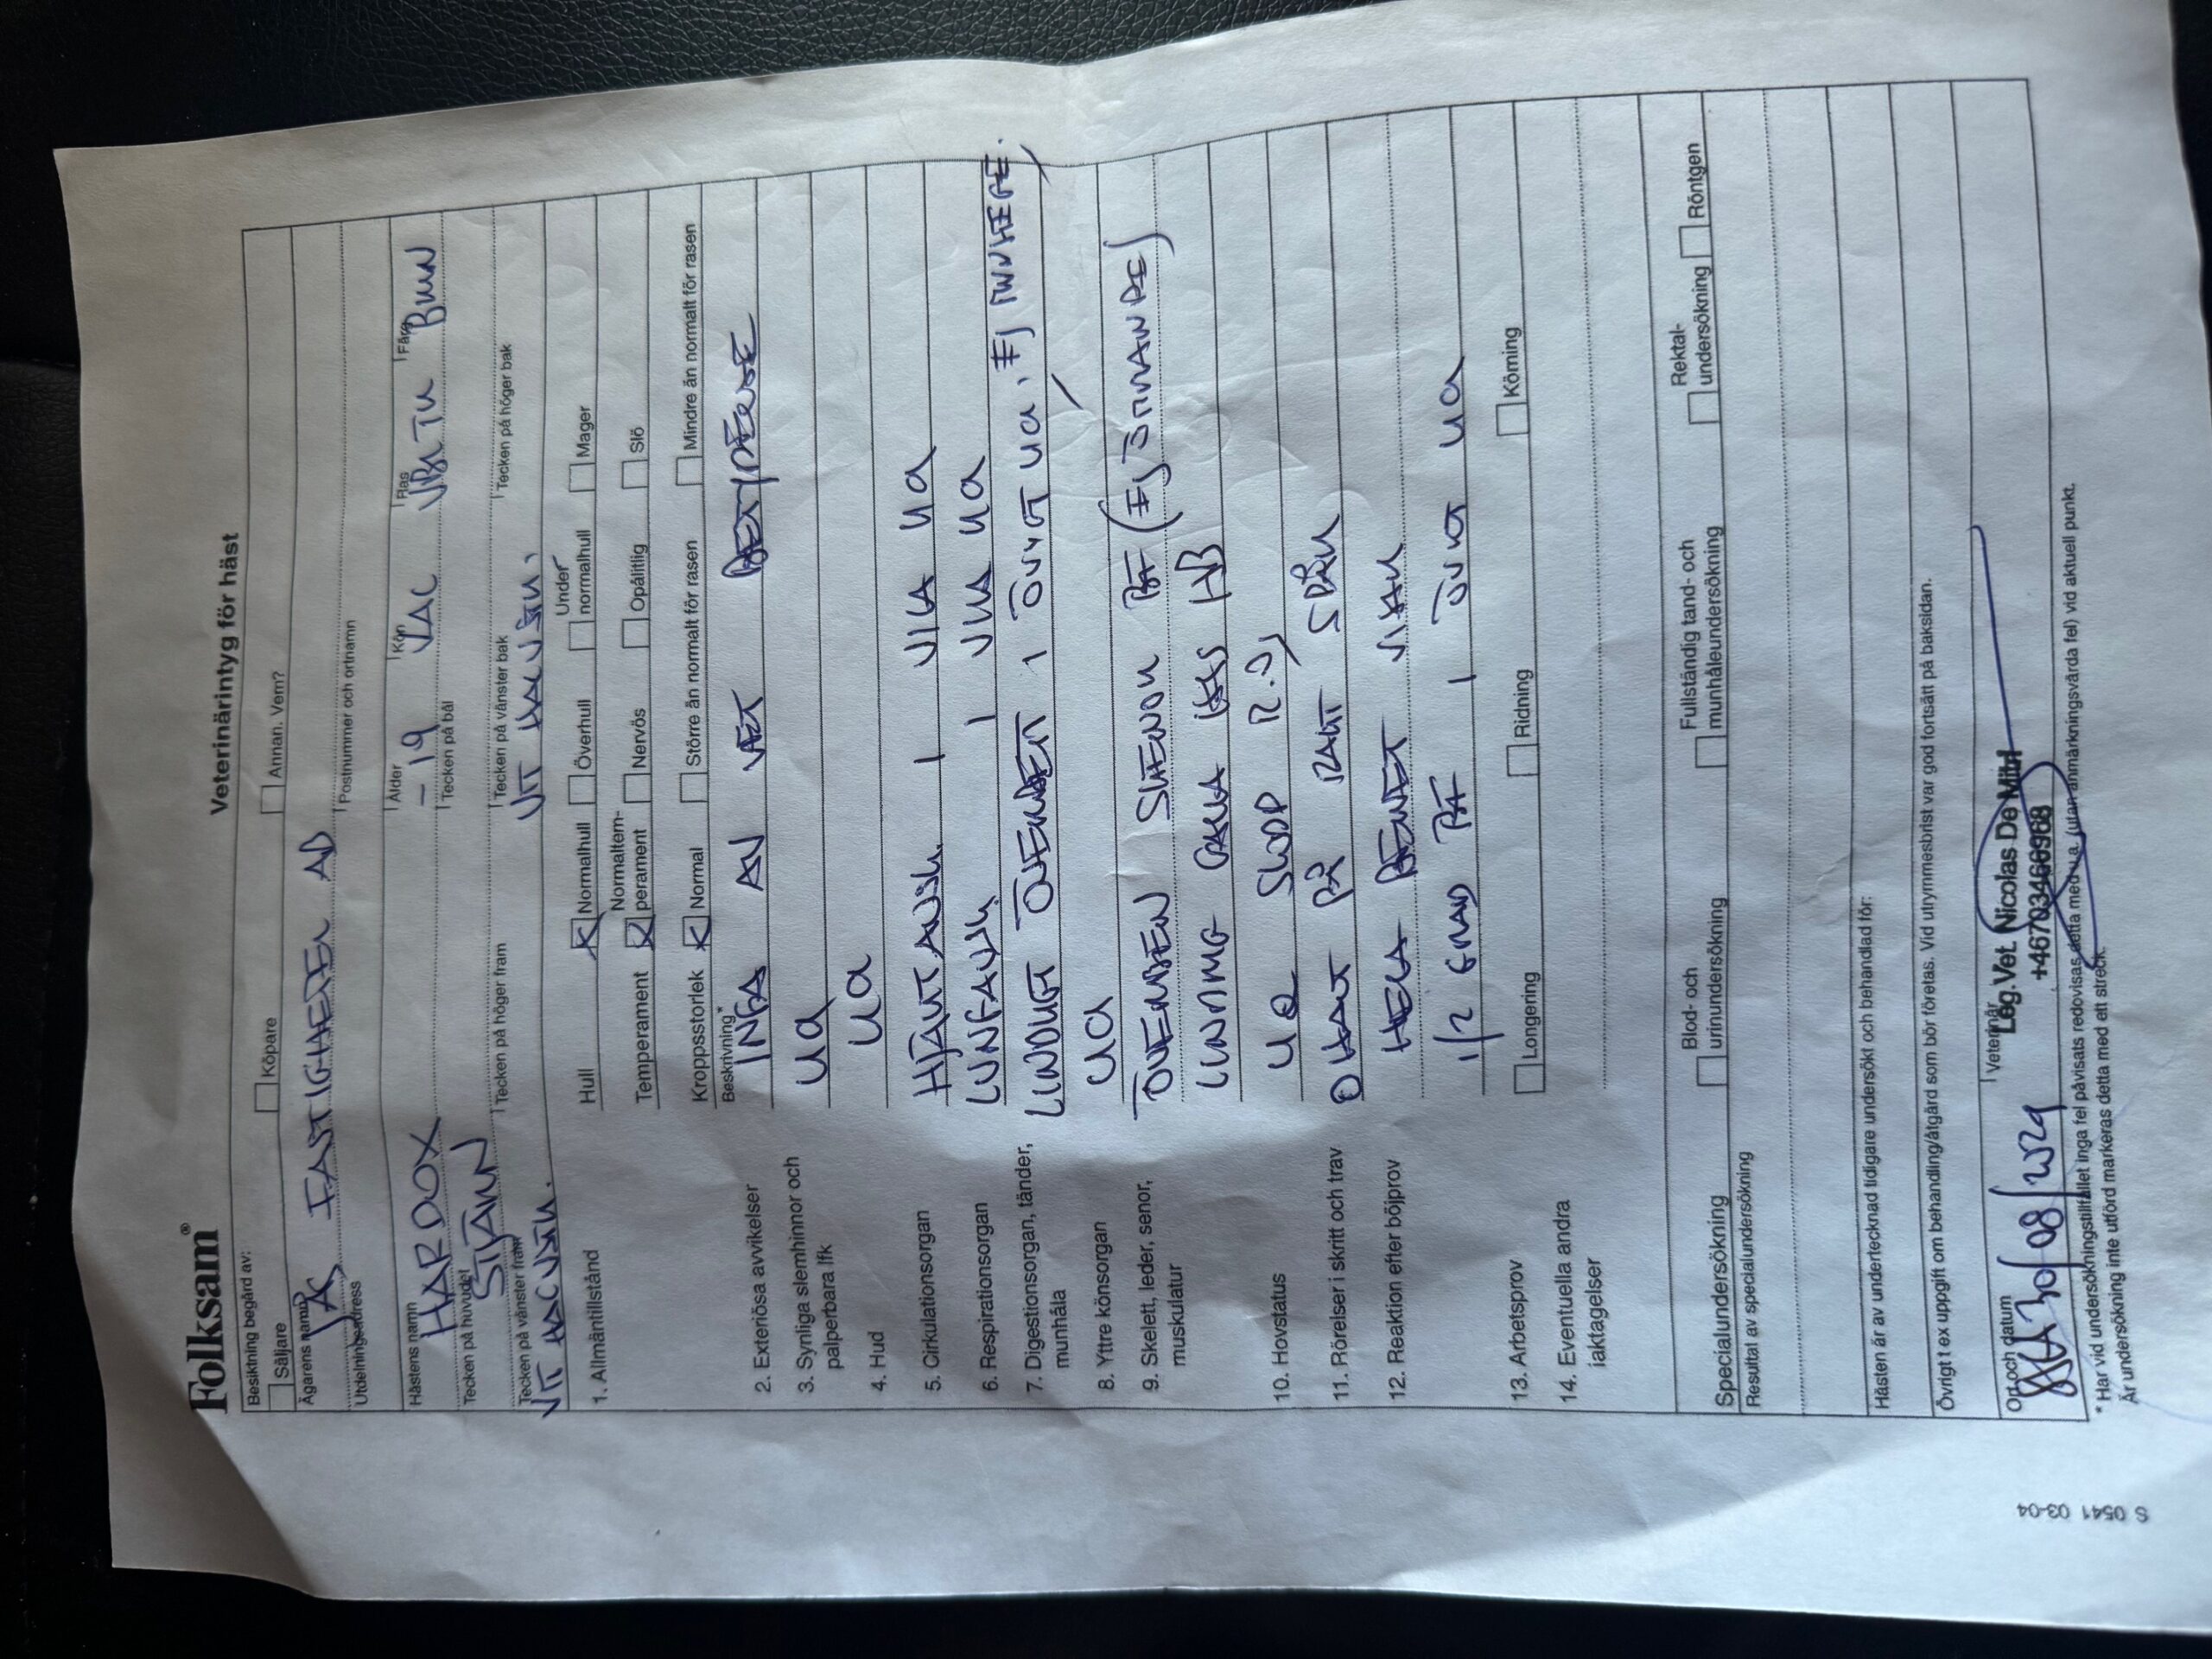 Folksam®
Veterinärintyg för häst
Besiktning begärd av:
Säljare
Köpare
Annan. Vem?
Ägarens namn
FASTIGHETER AB
Utdelningsadress
Postnummer och ortnamn
Hästens namn
Ålder
Kön
Ras
Färg
HARDOX
-19 VAL
Tecken på huvudet
Tecken på bål
STJÄRN
Tecken på vänster fram
Tecken på höger fram
Tecken på vänster bak
Tecken på höger bak
1. Allmäntillstånd
Hull
Normalhull
Överhull
Under normalhull
Mager
Temperament
Normaltemperament
Nervös
Opålitlig
Slö
Kroppsstorlek
Normal
Större än normalt för rasen
Mindre än normalt för rasen
Beskrivning*
2. Exteriösa avvikelser
INGA AV VET BETYDELSE
3. Synliga slemhinnor och palperbara lfk
ua
4. Hud
ua
5. Cirkulationsorgan
HJÄRTAUSK. I VILA ua
6. Respirationsorgan
LUNGAUSK I VILA ua
7. Digestionsorgan, tänder, munhåla
LINDRIGT ÖVERBETT I ÖVRIGT ua, EJ
8. Yttre könsorgan
ua
9. Skelett, leder, senor, muskulatur
ÖVERBEN SKENOR BF (EJ ÖMMANDE)
LINDRIG GALLA HAS HB
10. Hovstatus
ua SKODD
11. Rörelser i skritt och trav
OHALT PÅ RAKT SPÅR
12. Reaktion efter böjprov
HELA BENET
1/2 GRAD BF I ÖVRIGT ua
13. Arbetsprov
Longering
Ridning
Körning
14. Eventuella andra iakttagelser
Specialundersökning
Blod- och urinundersökning
Fullständig tand- och munhåleundersökning
Rektal-undersökning
Röntgen
Resultat av specialundersökning
Hästen är av undertecknad tidigare undersökt och behandlad för:
Övrigt t ex uppgift om behandling/åtgärd som bör företas. Vid utrymmesbrist var god fortsätt på baksidan.
Ort och datum
Veterinär
30/08/2024
Leg.Vet. Nicolas De Mitri
+46703466988
* Har vid undersökningstillfället inga fel påvisats redovisas detta med u.a. (utan anmärkningsvärda fel) vid aktuell punkt.
Är undersökning inte utförd markeras detta med ett streck.
S 0541 03-04